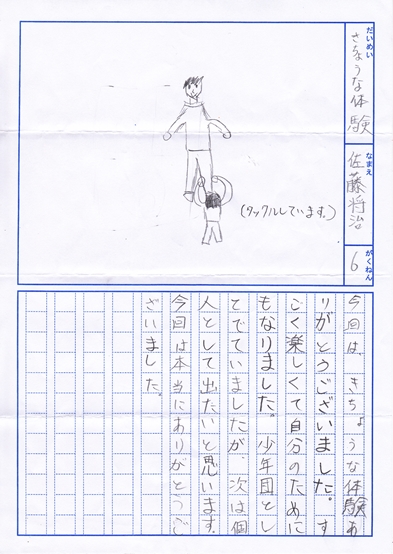 だいめい
さちょうな体験
なまえ
佐藤将治
がくねん
6
(タックルしています。)
今回は、きちょうな体験あ
りがとうございました。す
ごく楽しくて自分のために
もなりました。少年団とし
てでていましたが、次は個
人として出たいと思います。
今回は本当にありがとうご
ざいました。